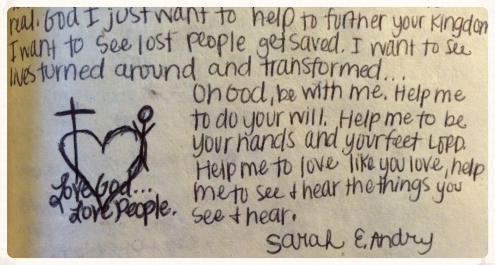 real. God I just want to help to further your Kingdom
I want to see lost people get saved. I want to see
lives turned around and transformed...
Oh God, be with me. Help me
to do your will. Help me to be
your hands and your feet LORD.
Help me to love like you love, help
me to see & hear the things you
see & hear.
Love God...
Love People.
Sarah E. Andry